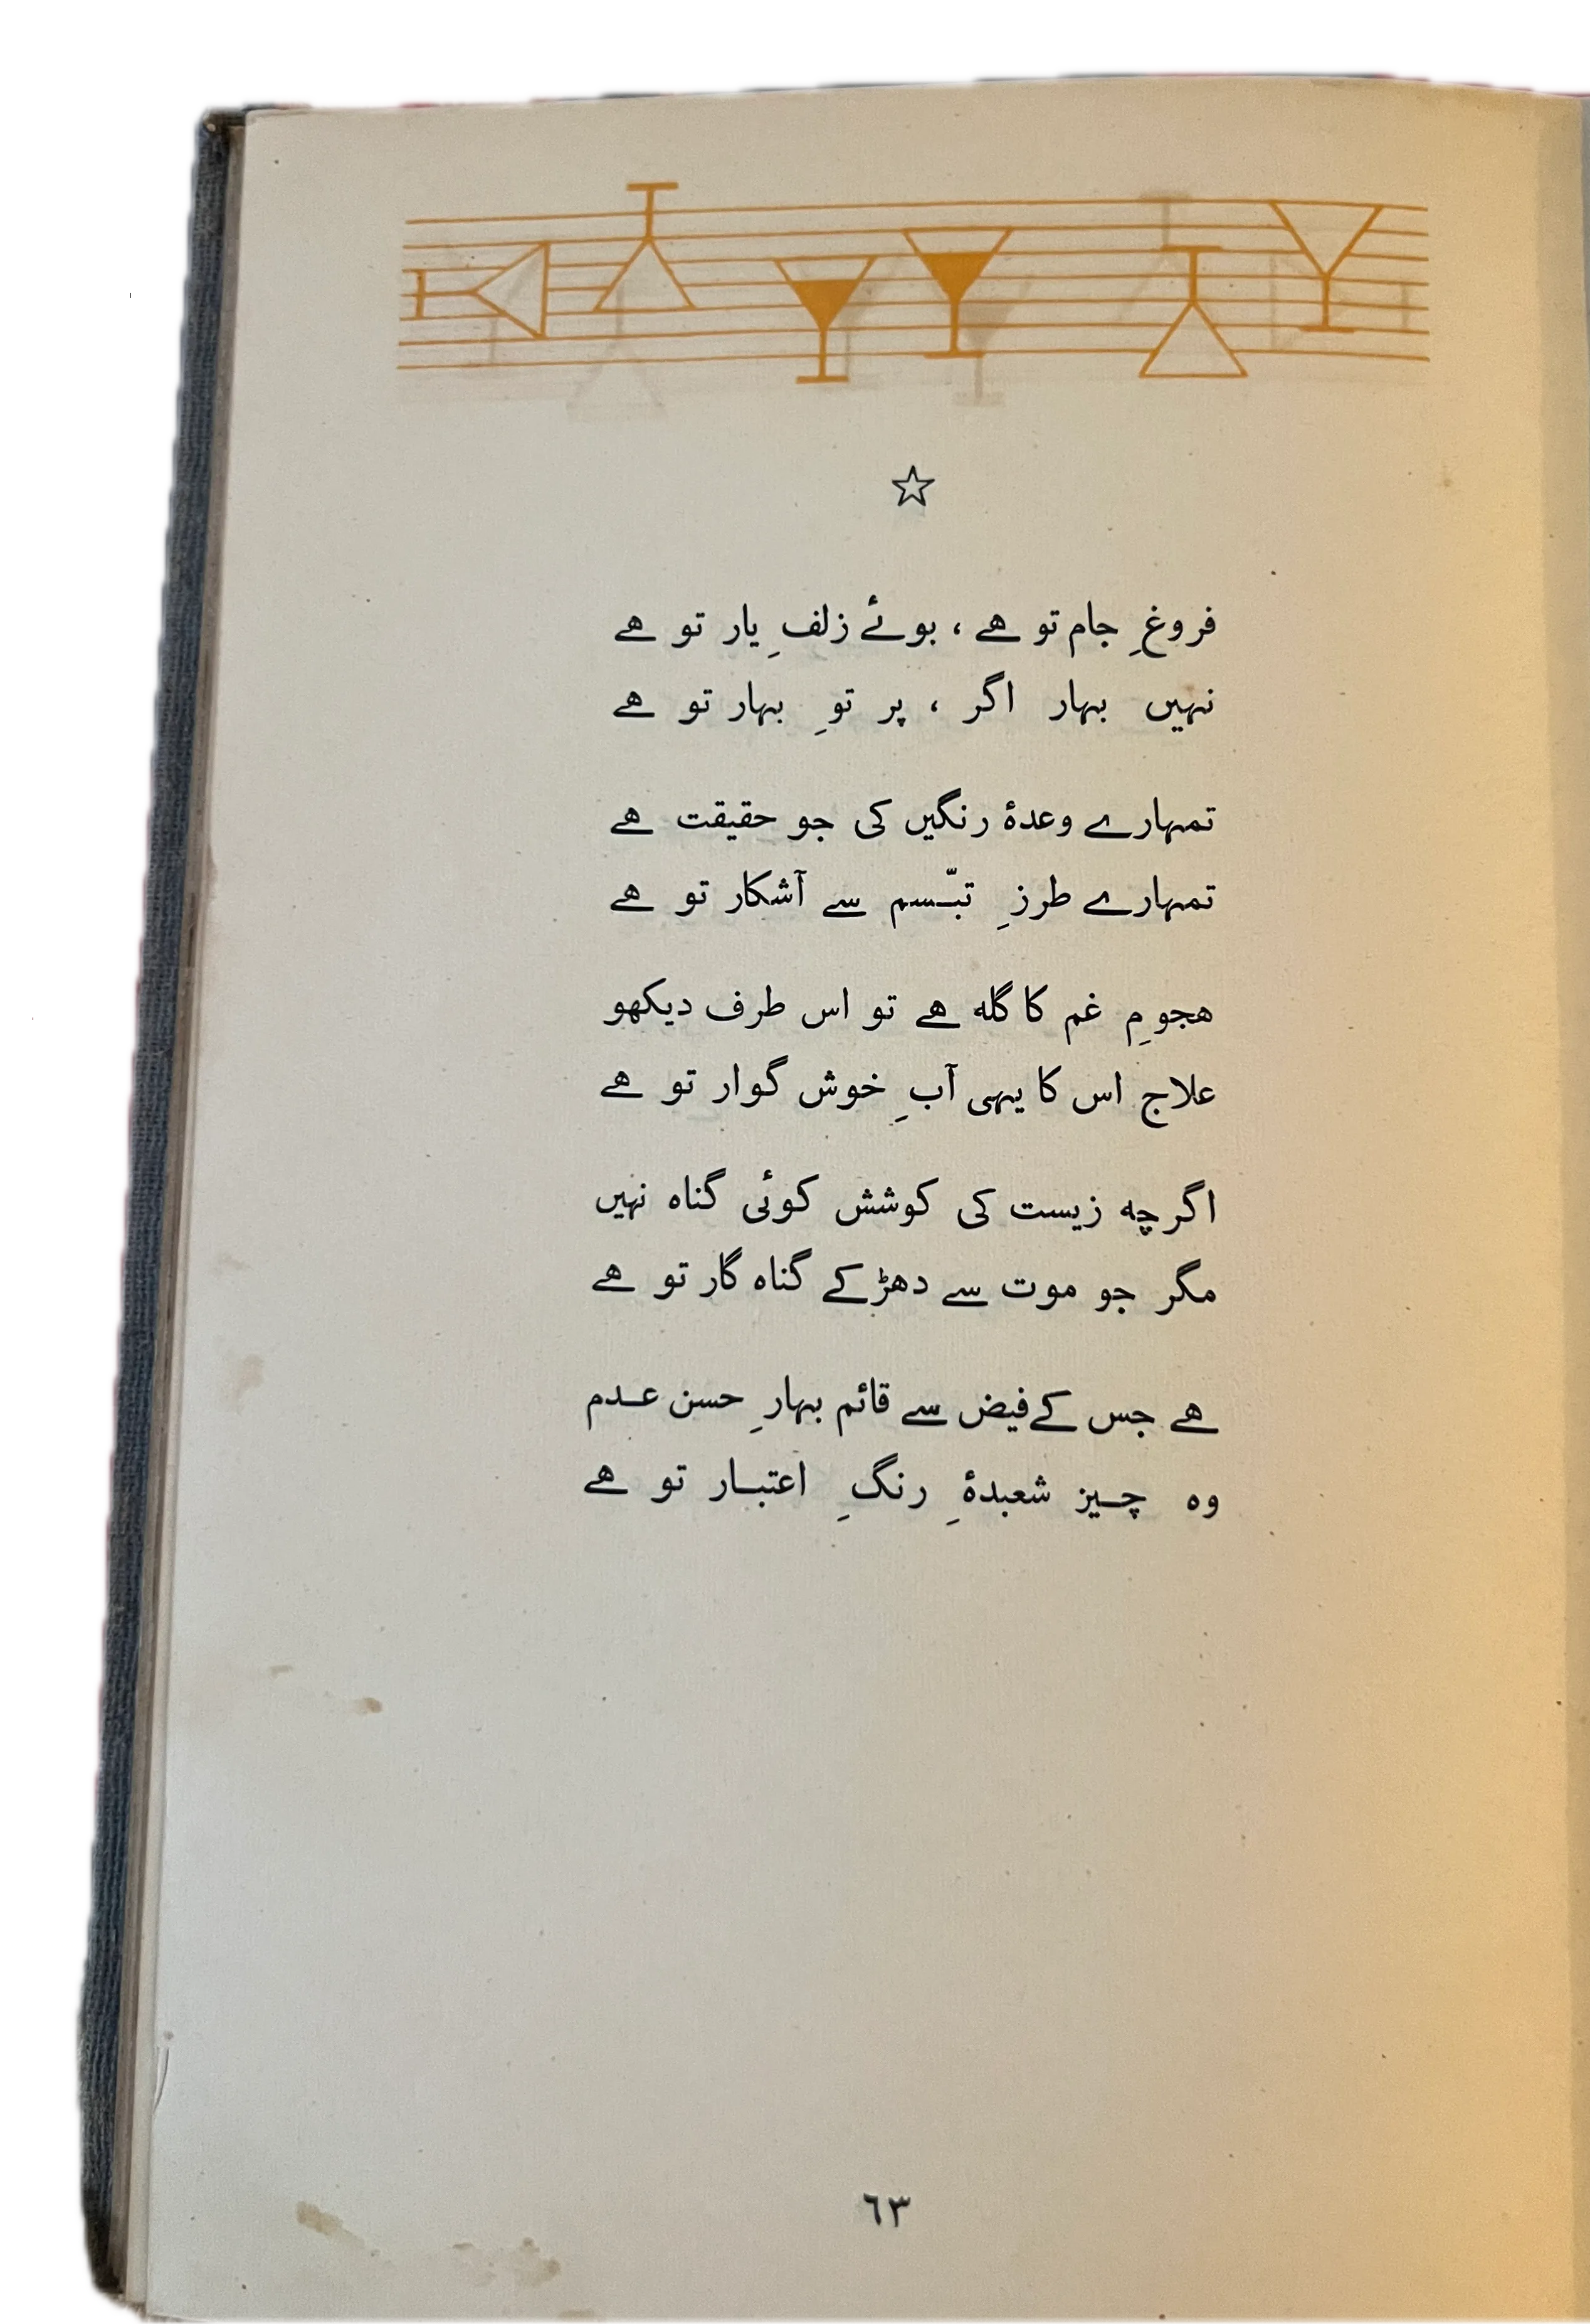 فروغِ جام تو ہے ، بوئے زلفِ یار تو ہے
نہیں بہار اگر ، پر توِ بہار تو ہے
تمہارے وعدۂ رنگیں کی جو حقیقت ہے
تمہارے طرزِ تبّسم سے آشکار تو ہے
ہجومِ غم کا گلہ ہے تو اس طرف دیکھو
علاج اس کا یہی آبِ خوش گوار تو ہے
اگرچہ زیست کی کوشش کوئی گناہ نہیں
مگر جو موت سے دھڑکے گناہ گار تو ہے
ہے جس کے فیض سے قائم بہارِ حسن عدم
وہ چیز شعبدۂِ رنگِ اعتبار تو ہے
٦٣